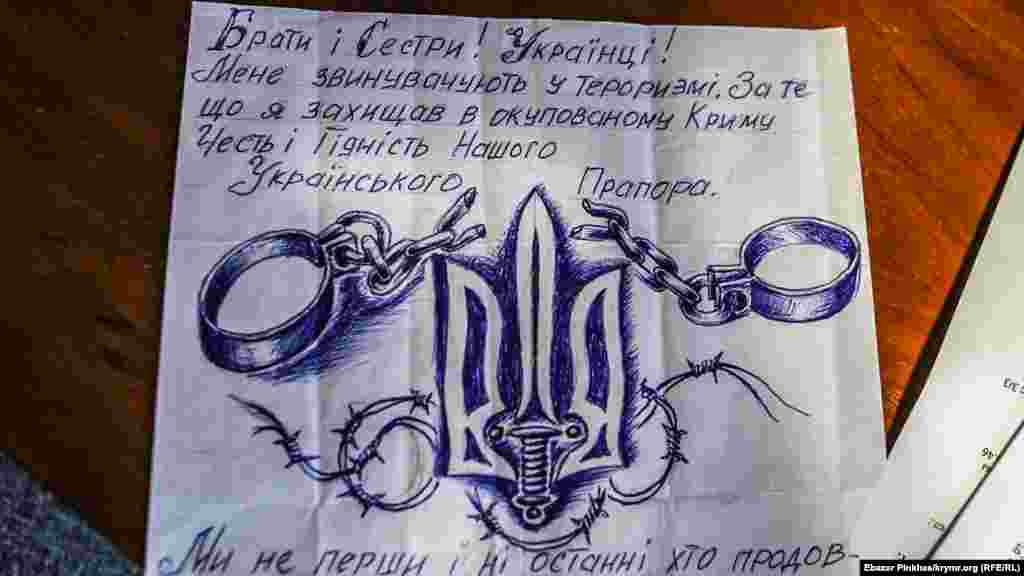 Брати і Сестри! Українці!
Мене звинувачують у тероризмі. За те
що я захищав в окупованому Криму
Честь і Гідність Нашого
Українського Прапора.
Ми не перши і ні останні хто продов-
Ebazer Pinkhas/krymr.org (RFE/RL)